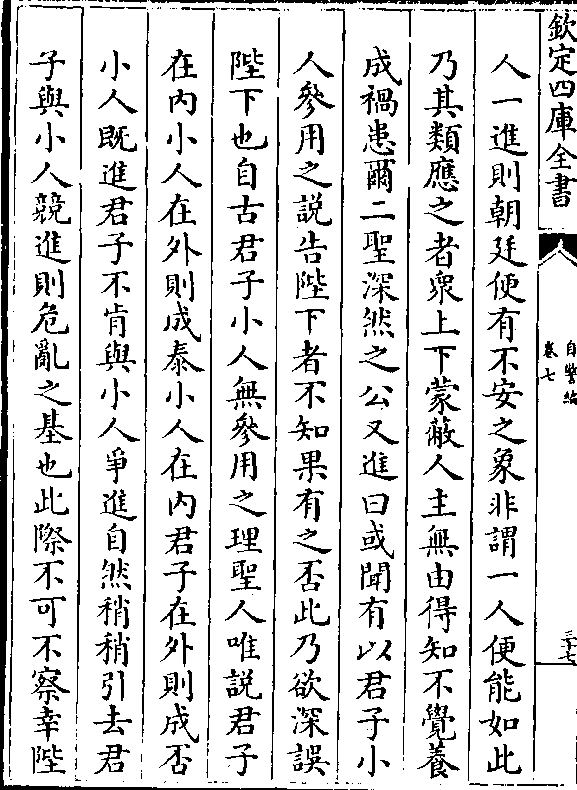 欽定四庫全書
自警編
卷七
三十七
人一進則朝廷便有不安之象非謂一人便能如此
乃其類應之者衆上下蒙蔽人主無由得知不覺養
成禍患爾二聖深然之公又進曰或聞有以君子小
人參用之説告陛下者不知果有之否此乃欲深誤
陛下也自古君子小人無參用之理聖人唯説君子
在内小人在外則成泰小人在内君子在外則成否
小人既進君子不肯與小人爭進自然稍稍引去君
子與小人競進則危亂之基也此際不可不察幸陛